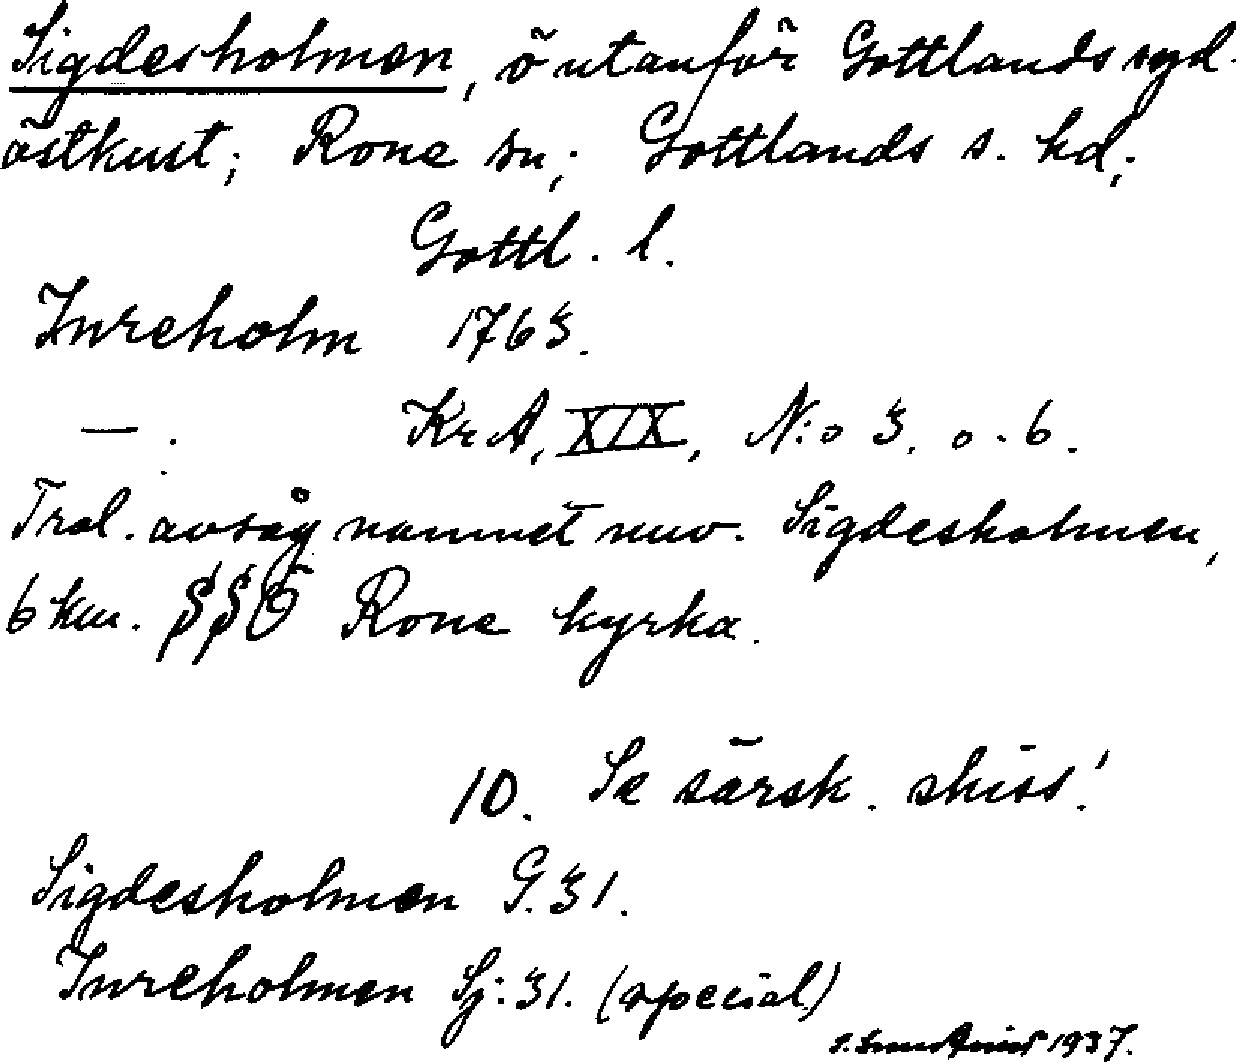 Sigdesholmen, ö utanför Gottlands syd-
östkust; Rone sn; Gottlands s. hd;
Gottl. l.
Inreholm 1763.
— . KrA, XIX, N:o 3. o. 6.
Trol. avsåg namnet nuv. Sigdesholmen,
6 km. SSÖ Rone kyrka.
10. Se särsk. skiss!
Sigdesholmen G.31.
Inreholmen Sj:31. (special)
1937.